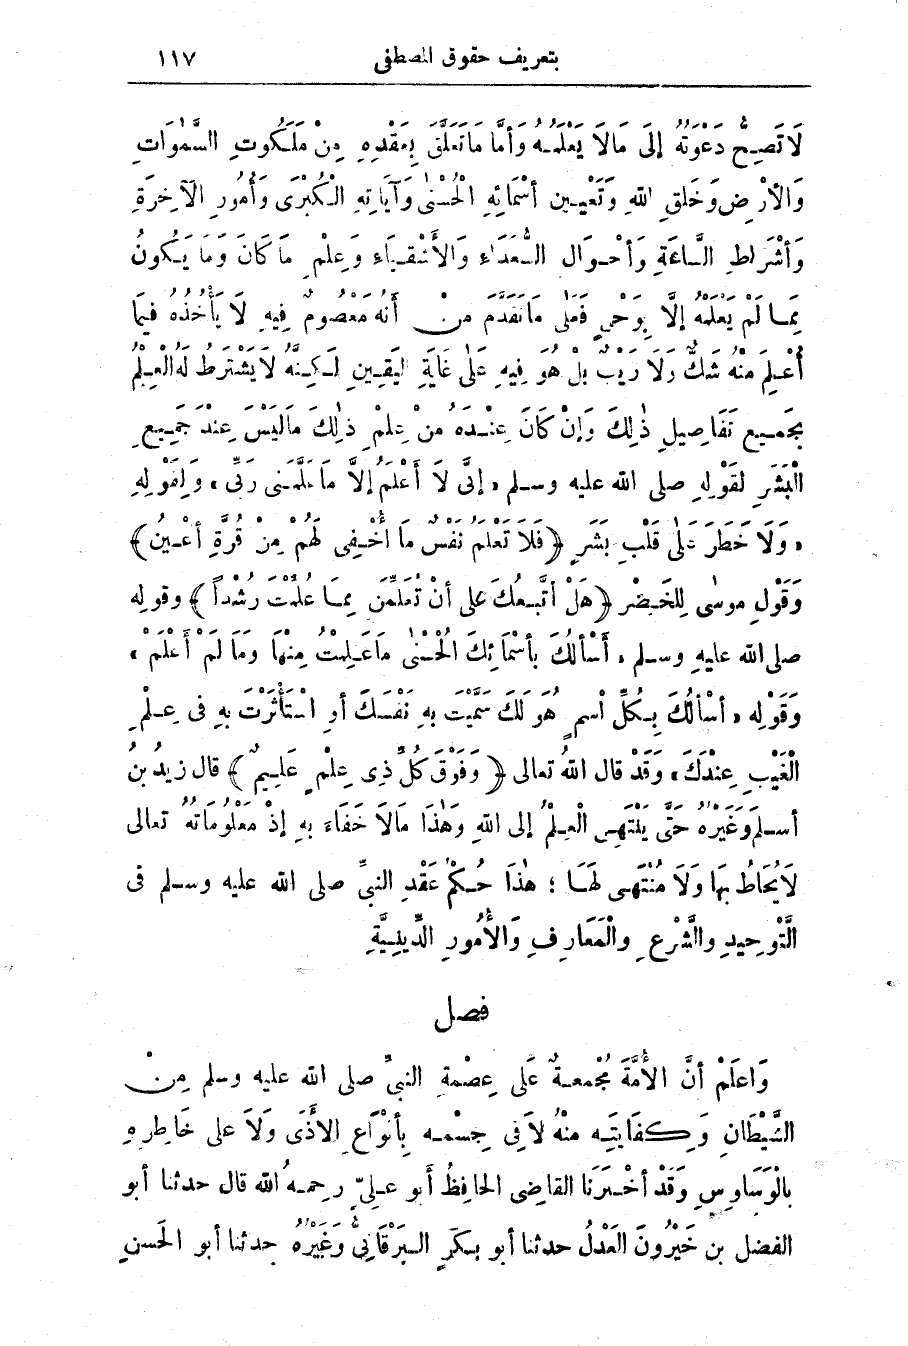 بتعريف حقوق المصطفى ١١٧
لَا تَصِحُّ دَعْوَتُهُ إِلَى مَالَا يَعْلَمُهُ وَأَمَّا مَا تَعَلَّقَ بِعَقْدِهِ مِنْ مَلَكُوتِ السَّمٰوَاتِ
وَالْأَرْضِ وَخَلْقِ اللهِ وَتَعْيِينِ أَسْمَائِهِ الْحُسْنٰى وَآيَاتِهِ الْكُبْرَى وَأُمُورِ الْآخِرَةِ
وَأَشْرَاطِ السَّاعَةِ وَأَحْوَالِ السُّعَدَاءِ وَالْأَشْقِيَاءِ وَعِلْمِ مَا كَانَ وَمَا يَكُونُ
مِمَّا لَمْ يَعْلَمْهُ إِلَّا بِوَحْيٍ فَعَلَى مَا تَقَدَّمَ مِنْ أَنَّهُ مَعْصُومٌ فِيهِ لَا يَأْخُذُهُ فِيمَا
أُعْلِمَ مِنْهُ شَكٌّ وَلَا رَيْبٌ بَلْ هُوَ فِيهِ عَلَى غَايَةِ الْيَقِينِ لَكِنَّهُ لَا يَشْتَرِطُ لَهُ الْعِلْمُ
بِجَمِيعِ تَفَاصِيلِ ذٰلِكَ وَإِنْ كَانَ عِنْدَهُ مِنْ عِلْمِ ذٰلِكَ مَا لَيْسَ عِنْدَ جَمِيعِ
الْبَشَرِ لِقَوْلِهِ صلى الله عليه وسلم « إِنِّى لَا أَعْلَمُ إِلَّا مَا عَلَّمَنِى رَبِّى » وَلِقَوْلِهِ
« وَلَا خَطَرَ عَلَى قَلْبِ بَشَرٍ ﴿ فَلَا تَعْلَمُ نَفْسٌ مَا أُخْفِىَ لَهُمْ مِنْ قُرَّةِ أَعْيُنٍ ﴾
وَقَوْلِ موسٰى لِلْخَضِرِ ﴿ هَلْ أَتَّبِعُكَ عَلَى أَنْ تُعَلِّمَنِ مِمَّا عُلِّمْتَ رُشْداً ﴾ وقوله
صلى الله عليهِ وسلم « أَسْأَلُكَ بِأَسْمَائِكَ الْحُسْنٰى مَا عَلِمْتُ مِنْهَا وَمَا لَمْ أَعْلَمْ »
وَقَوْلِهِ « أَسْأَلُكَ بِكُلِّ اسْمٍ هُوَ لَكَ سَمَّيْتَ بِهِ نَفْسَكَ أَوِ اسْتَأْثَرْتَ بِهِ فِى عِلْمِ
الْغَيْبِ عِنْدَكَ » وَقَدْ قال اللهُ تعالى ﴿ وَفَوْقَ كُلِّ ذِى عِلْمٍ عَلِيمٌ ﴾ قال زيدُ بنُ
أسلمَ وَغَيْرُهُ حَتَّى يَنْتَهِىَ الْعِلْمُ إِلى اللهِ وَهٰذَا مَالَا خَفَاءَ بِهِ إِذْ مَعْلُومَاتُهُ تعالى
لَا يُحَاطُ بِهَا وَلَا مُنْتَهَى لَهَا ؛ هٰذَا حُكْمُ عَقْدِ النبيِّ صلى الله عليه وسلم فى
التَّوْحِيدِ والشَّرْعِ والْمَعَارِفِ وَالْأُمُورِ الدِّينِيَّةِ
فصل
وَاعْلَمْ أَنَّ الْأُمَّةَ مُجْمِعَةٌ عَلَى عِصْمَةِ النبيِّ صلى الله عليه وسلم مِنْ
الشَّيْطَانِ وَكِفَايَتِهِ مِنْهُ لَا فِى جِسْمِهِ بِأَنْوَاعِ الْأَذَى وَلَا على خَاطِرِهِ
بالْوَسَاوِسِ وَقَدْ أَخْبَرَنَا القاضى الحافِظُ أَبو علىٍّ رحمهُ الله قال حدثنا أبو
الفضل بن خَيْرُونَ العَدْلُ حدثنا أبو بكرٍ البَرْقَانِيُّ وَغَيْرُهُ حدثنا أبو الحَسنِ